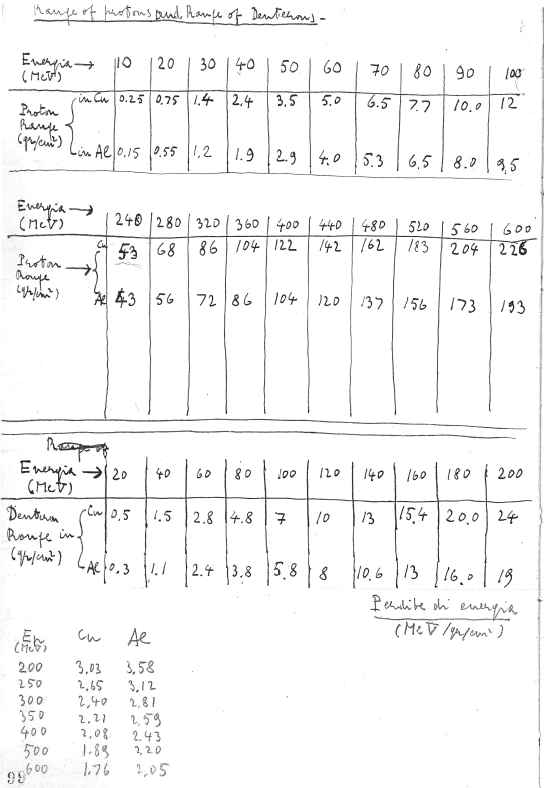 Range of protons and Range of Deuterons -
Energia → 10 20 30 40 50 60 70 80 90 100
(MeV)
Proton Range (gr/cm²) in Cu 0.25 0,75 1.4 2.4 3.5 5.0 6.5 7.7 10.0 12
in Al 0,15 0.55 1.2 1.9 2.9 4.0 5.3 6.5 8.0 9,5
Energia → 240 280 320 360 400 440 480 520 560 600
(MeV)
Proton Range (gr/cm²) → Cu 53 68 86 104 122 142 162 183 204 226
Al 43 56 72 86 104 120 137 156 173 193
Range of
Energia → 20 40 60 80 100 120 140 160 180 200
(MeV)
Deuteron Range in (gr/cm²) Cu 0,5 1.5 2.8 4.8 7 10 13 15.4 20.0 24
Al 0.3 1.1 2.4 3.8 5.8 8 10.6 13 16.0 19
Perdite di energia
(MeV/gr/cm²)
Ep Cu Al
(MeV)
200 3,03 3,58
250 2,65 3,12
300 2,40 2,81
350 2.21 2,59
400 2,08 2.43
500 1.89 2,20
600 1.76 2,05
99